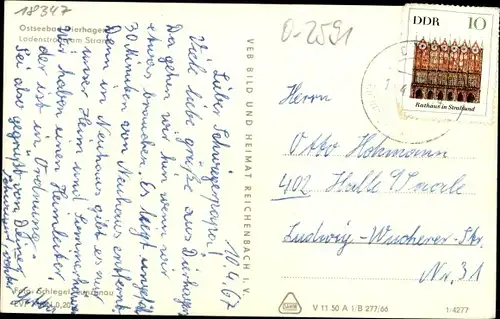 18347
Ostseebad Dierhagen
Ladenstraße am Strand
0-2591
DDR 10
Rathaus in Stralsund
10.4.67
Lieber Schwiegerpapa!
Viele liebe Grüße aus Dierhagen
Da gehen wir hin wenn wir
etwas brauchen. Es liegt ungefähr
30 Minuten von Neuhaus entfernt.
Denn in Neuhaus gibt es nur
unser Heim und Sommerhäuser
Wir haben einen Heimleiter,
der ist in Ordnung.
Sei also gegrüßt von Deiner
Schwiegertochter
VEB BILD UND HEIMAT REICHENBACH I. V.
Herrn
Otto Hohmann
402 Halle/Saale
Ludwig-Wucherer-Str.
Nr. 31
Foto: Schlegel,
EVP 0,20
V 11 50 A 1/B 277/66
1/4277